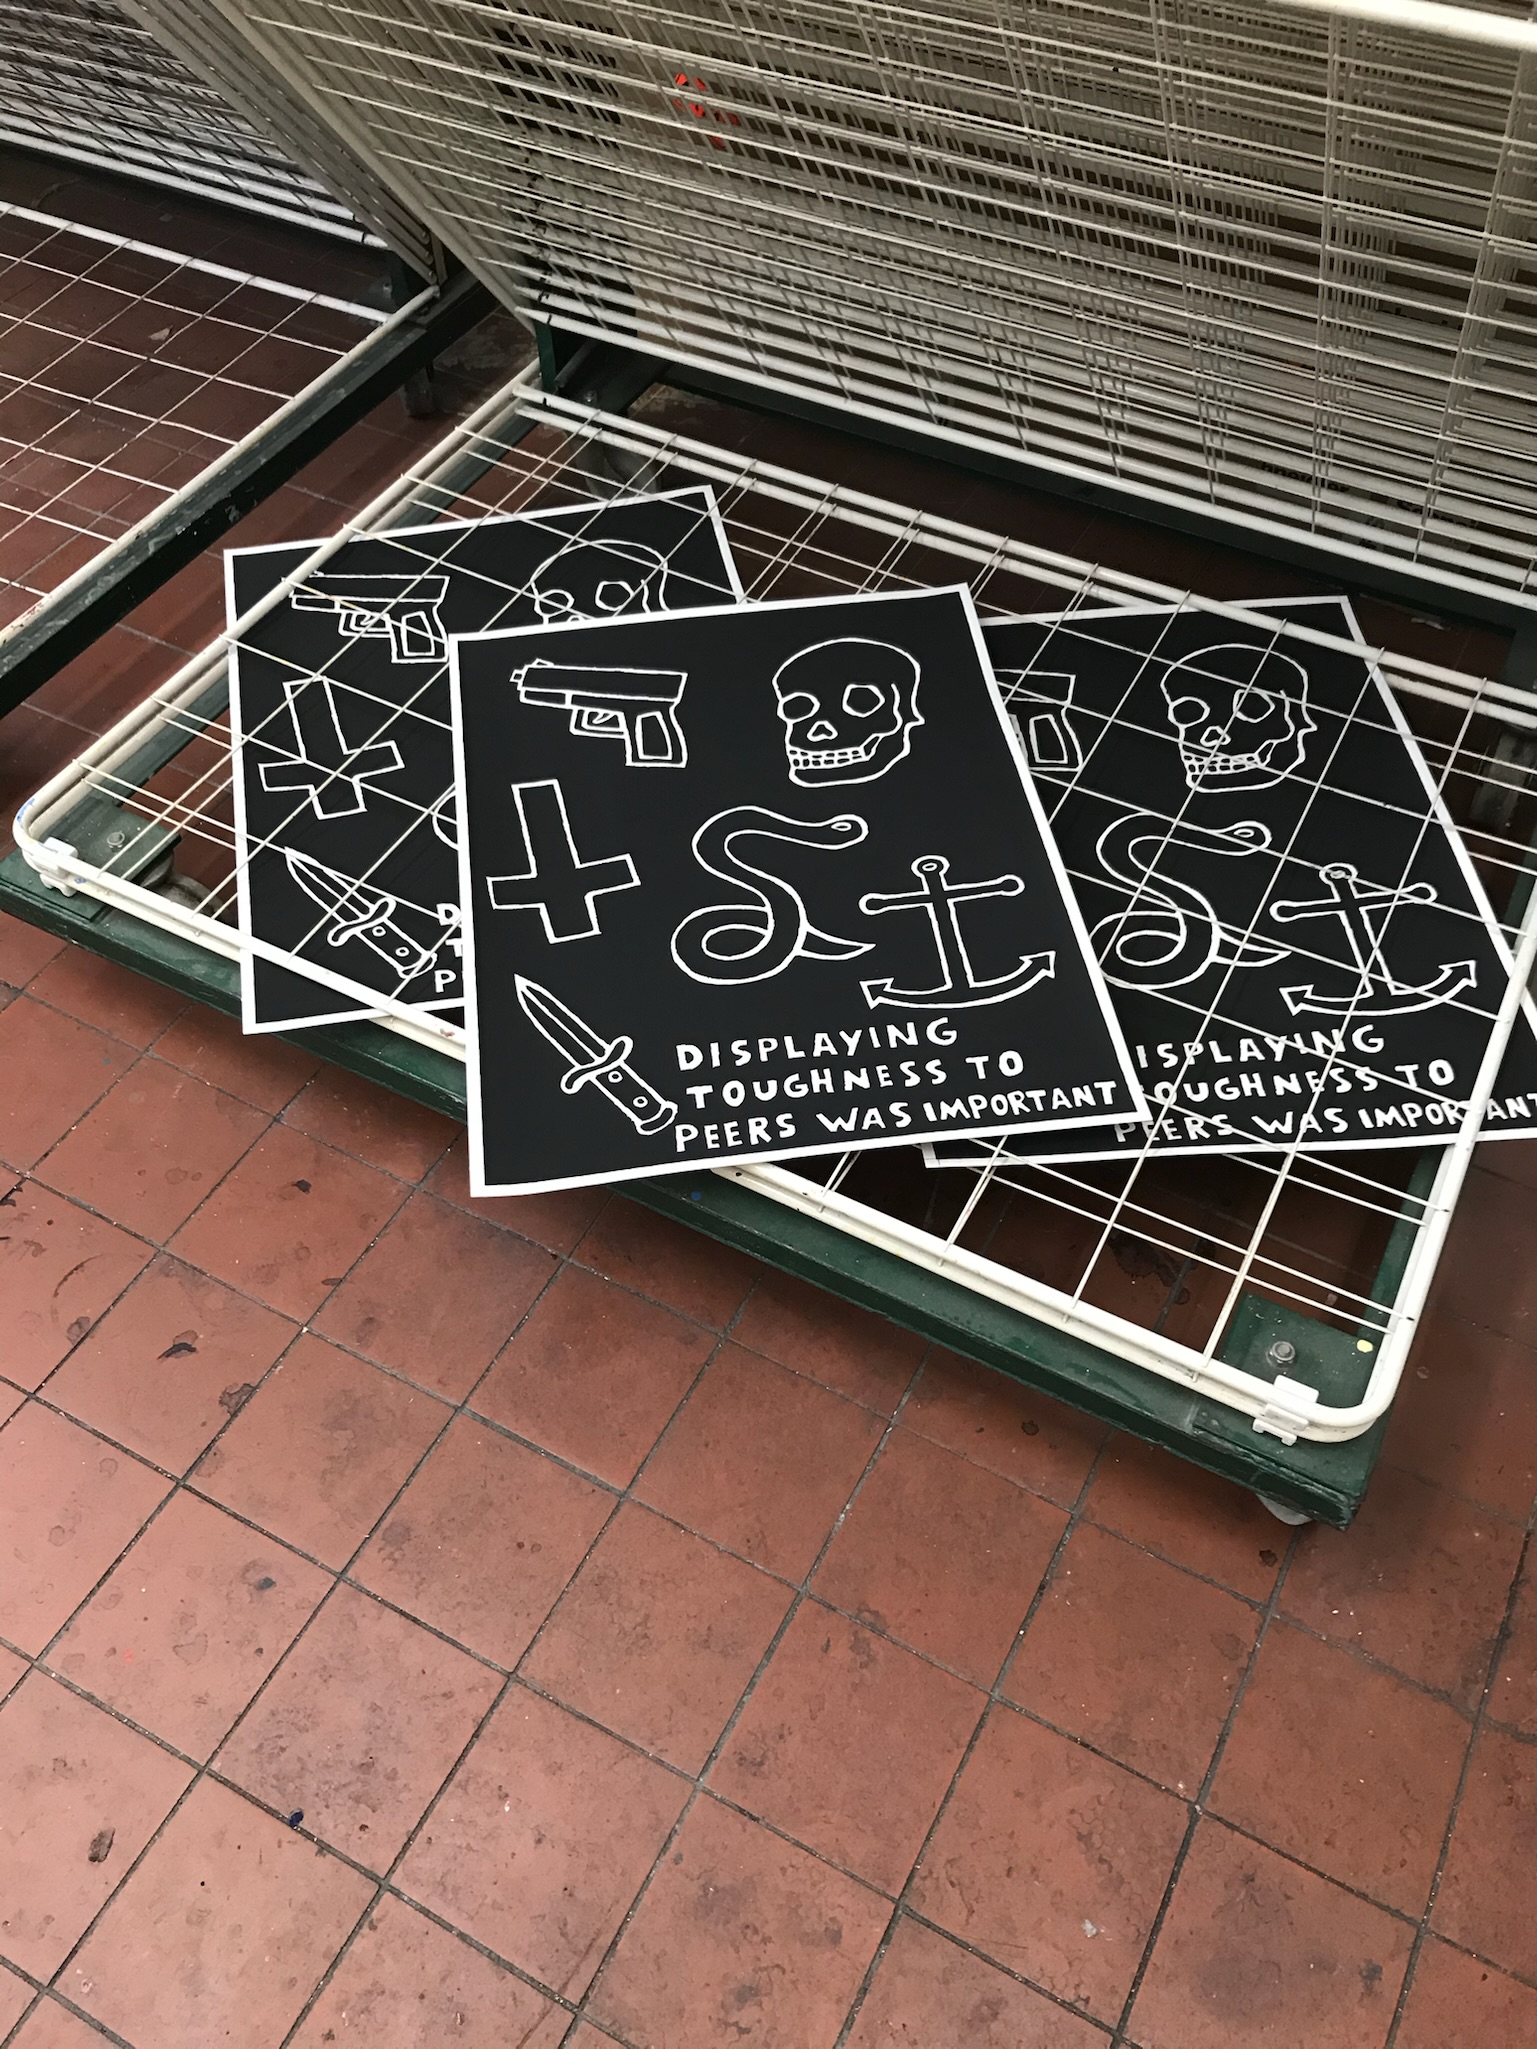 DISPLAYING
TOUGHNESS TO
PEERS WAS IMPORTANT
D
T
P
ISPLAYING
OUGHNESS TO
PEERS WAS IMPORTANT